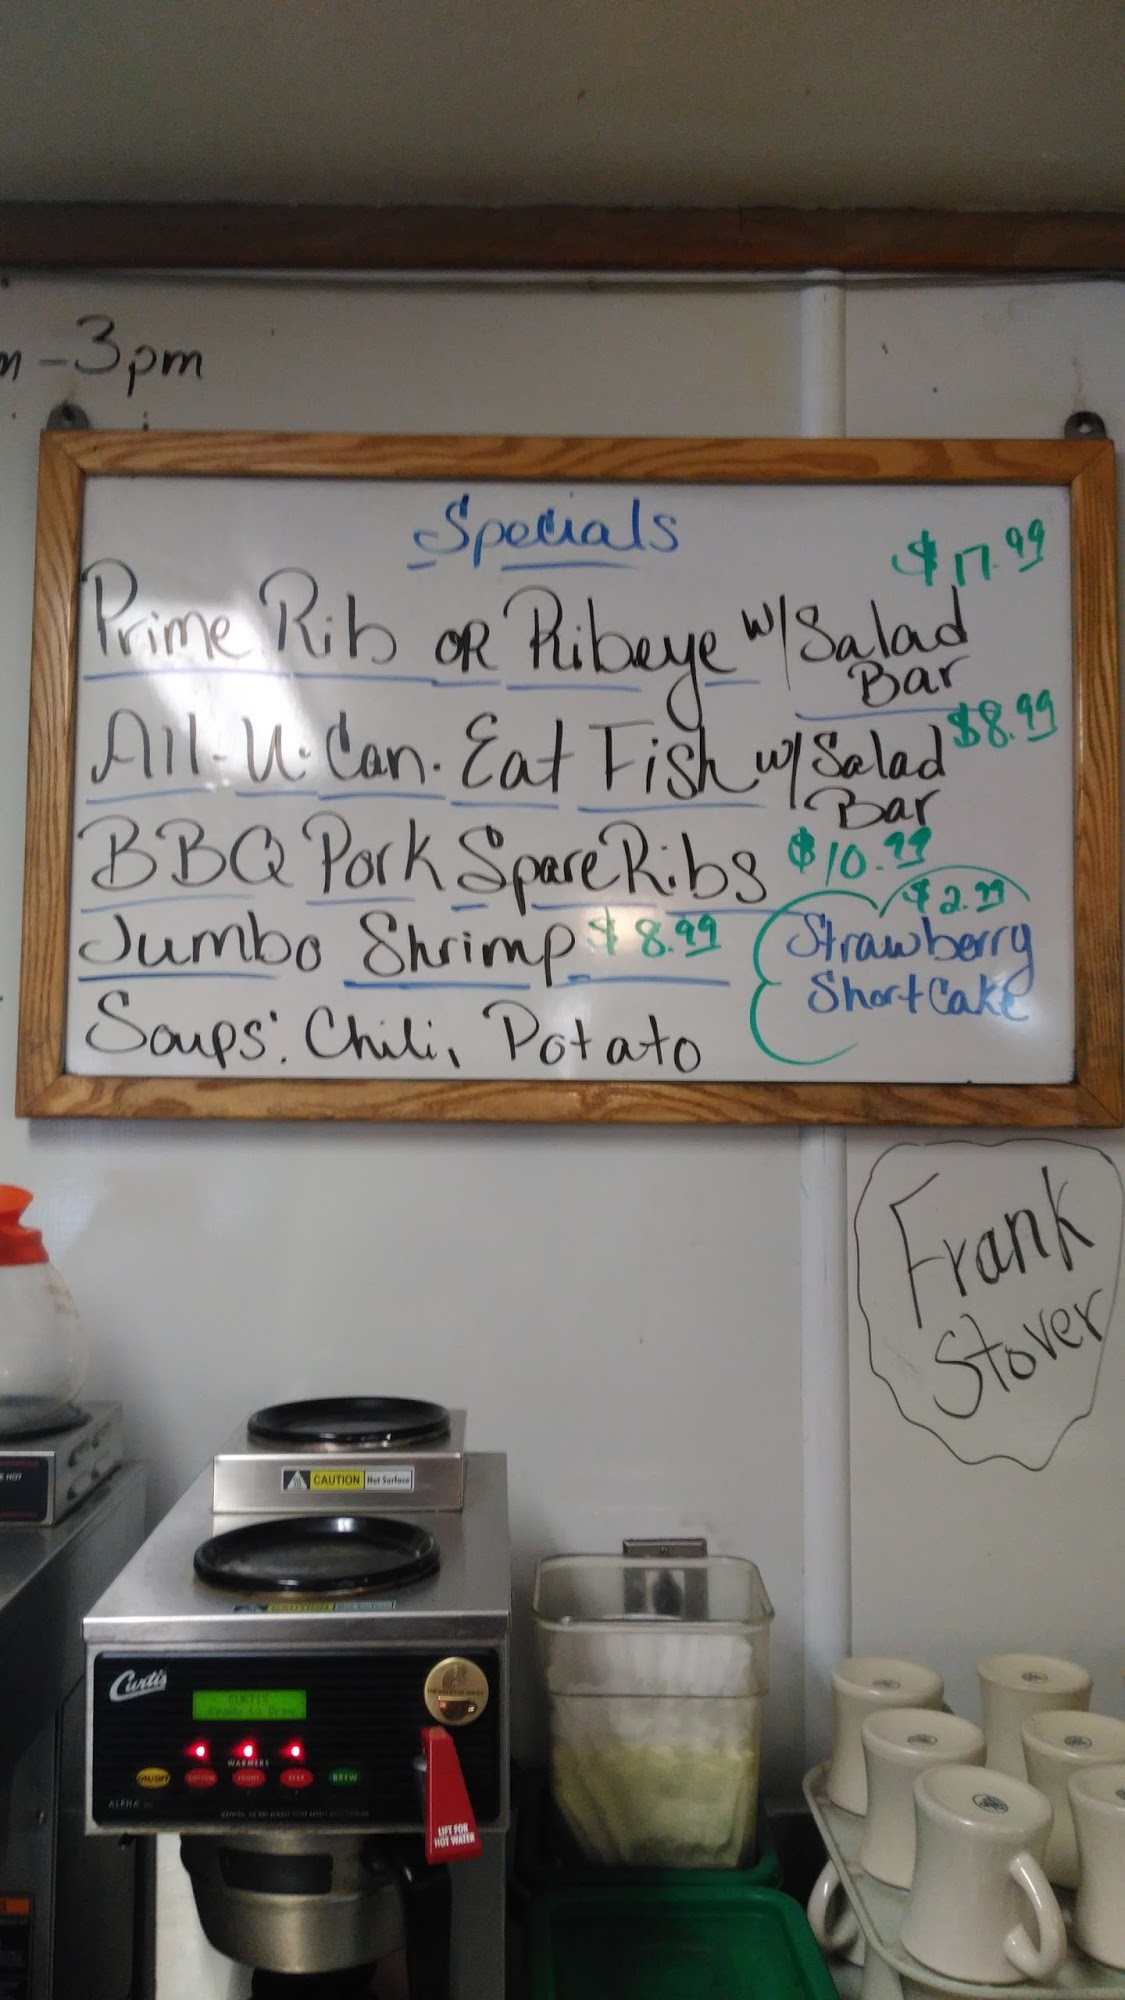 - 3pm
Specials
$17.99
Prime Rib OR Ribeye w/ Salad
Bar
All-U-Can-Eat Fish w/ Salad $8.99
Bar
BBQ Pork Spare Ribs $10.99
$2.99
Jumbo Shrimp $8.99 Strawberry
ShortCake
Soups: Chili, Potato
Frank
Stover
CAUTION Hot Surface
Curtis
CURTIS
WARMERS
ON/OFF BOTTOM FRONT REAR BREW
ALPHA
LIFT FOR
HOT WATER